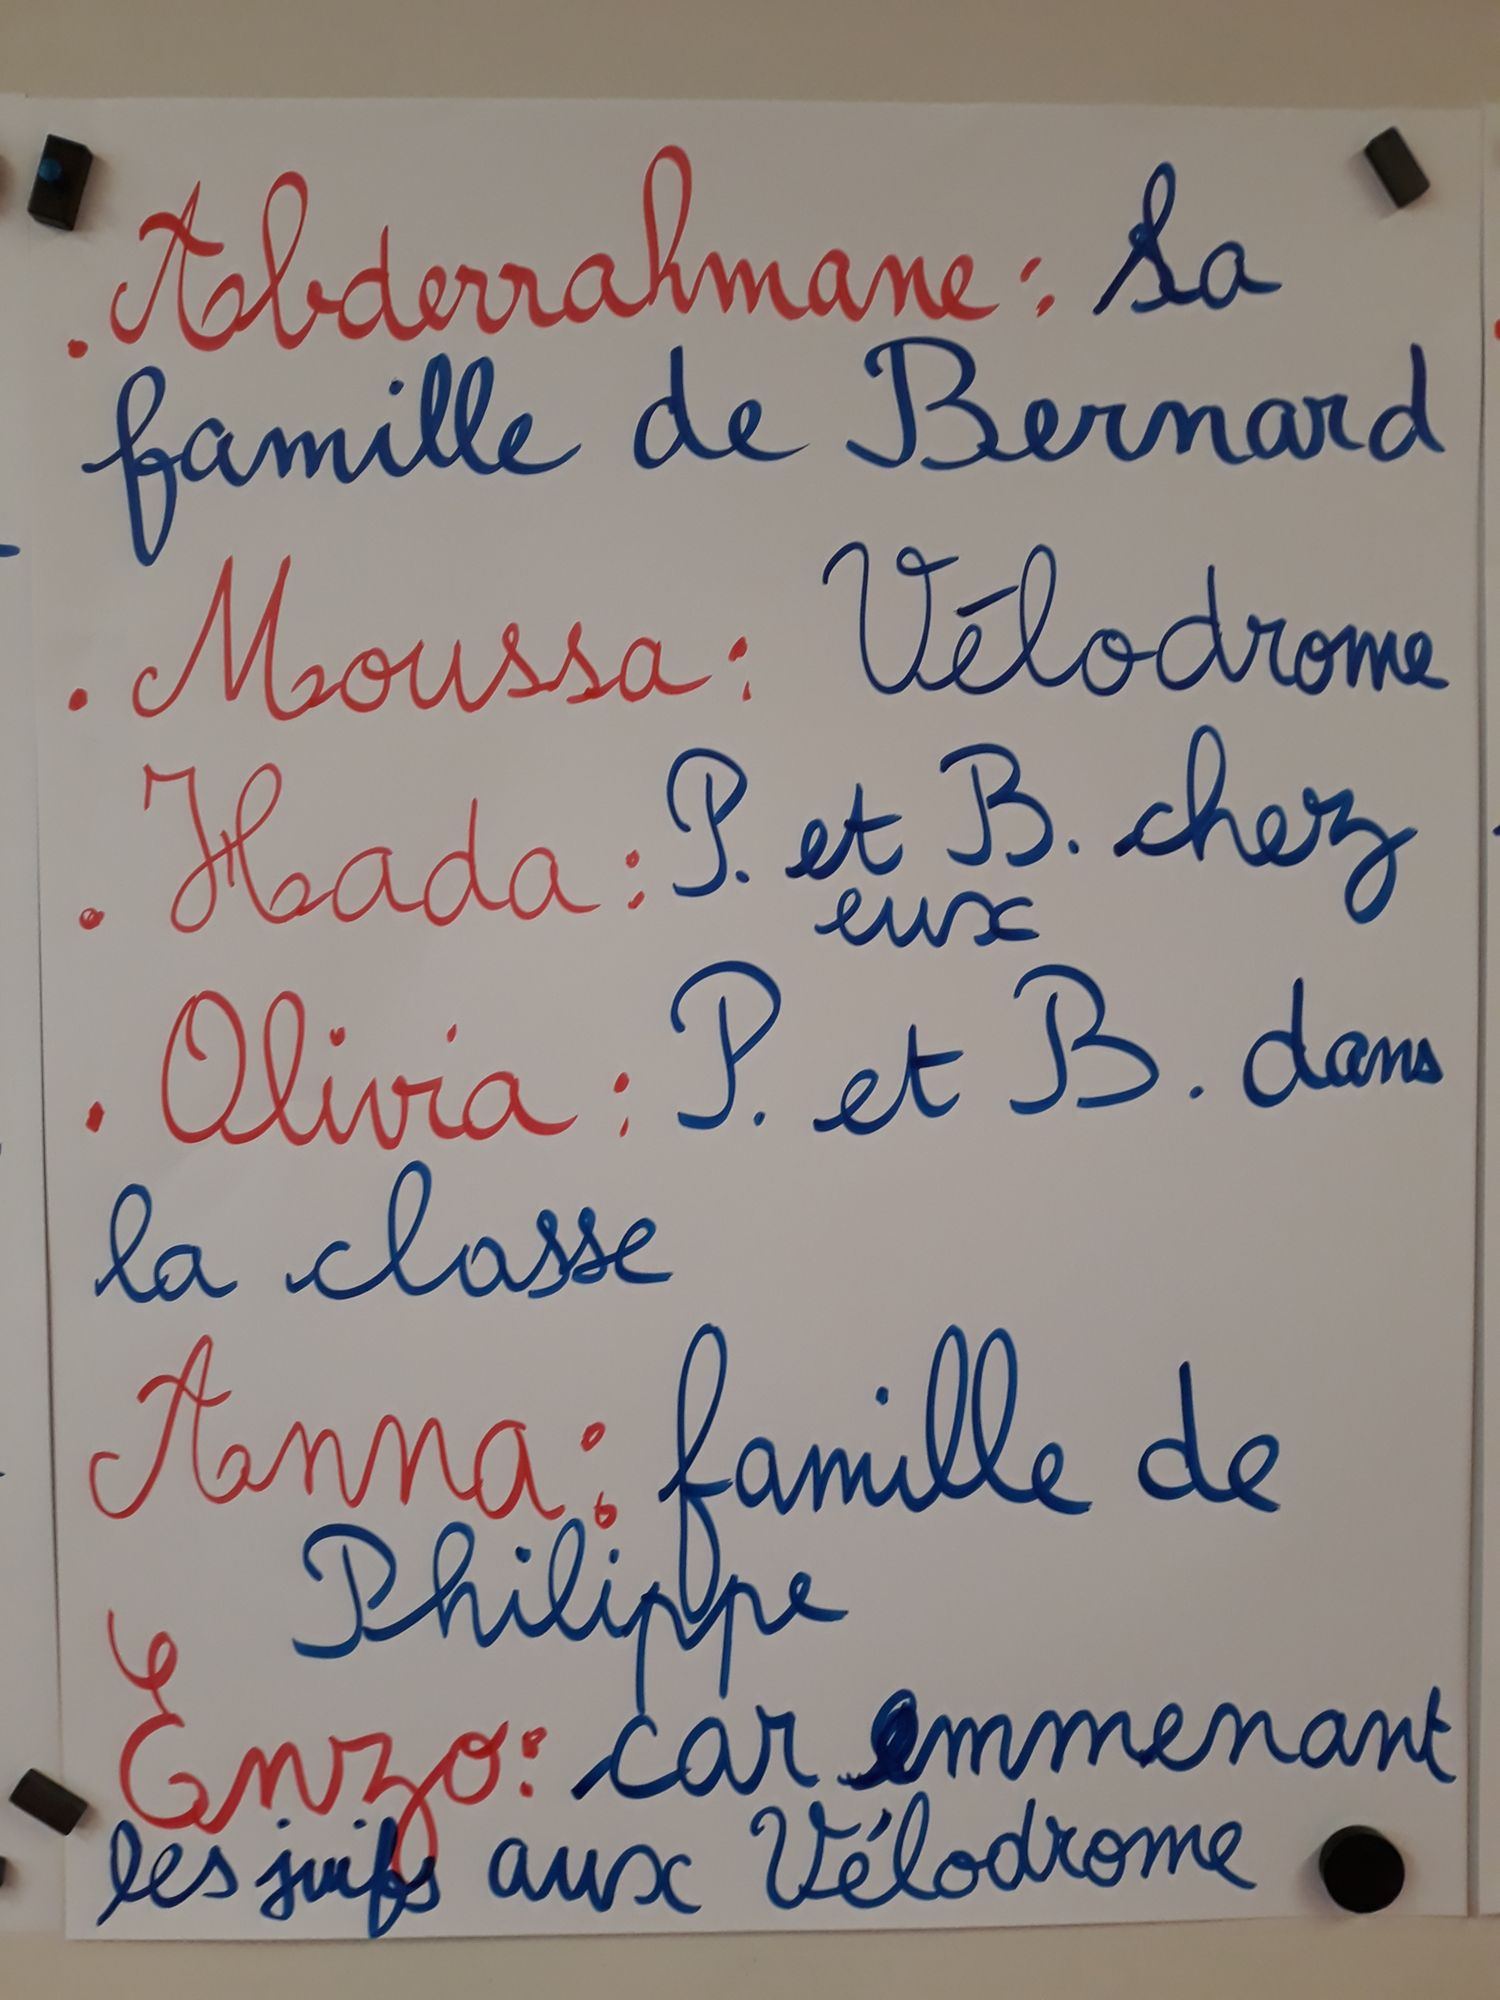 . Abderrahmane : La
famille de Bernard
. Moussa : Vélodrome
. Hada : P. et B. chez
eux
. Olivia : P. et B. dans
la classe
Anna : famille de
Philippe
Enzo : car emmenant
les juifs aux Vélodrome